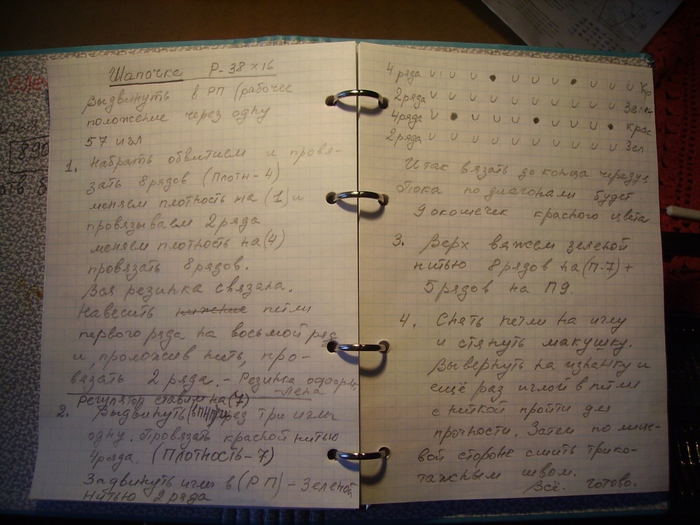 Шапочка Р-38×16
Выдвинуть в РП (рабочее
положение через одну
57 игл
1. Набрать обвитием и провя-
зать 8 рядов (Плотн-4)
меняем плотность на (1) и
провязываем 2 ряда
меняем плотность на (4)
провязать 8 рядов.
Вся резинка связана.
Навесить нижние петли
первого ряда на восьмой ряд
и, проложив нить, про-
вязать 2 ряда. - Резинка
Регулятор ставим на (7)
2. Выдвинуть через три иглы
одну. Провязать красной нитью
4 ряда. (Плотность-7)
Задвинуть иглы в (РП) - Зеленой
нитью 2 ряда
4 ряда
2 ряда Зелен
4 ряда Крас
2 ряда Зел
И так вязать до конца чередуя
Пока по диагонали будет
9 окошечек красного цвета
3. Верх вяжем зеленой
нитью 8 рядов на (П-7) +
5 рядов на П9.
4. Снять петли на иглу
и стянуть макушку.
Вывернуть на изнанку и
ещё раз иглой в петли
с ниткой пройти для
прочности. Затем по лице-
вой стороне сшить трико-
тажным швом.
Всё. готово.